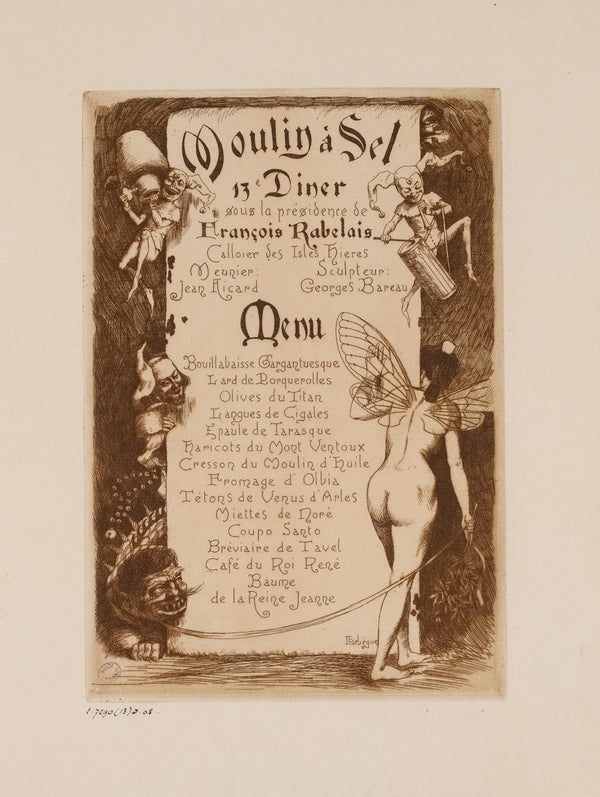 Moulin à Sel
13e Diner
sous la présidence de
François Rabelais
Calloier des Isles Hieres
Meunier: Sculpteur:
Jean Aicard Georges Bareau
Menu
Bouillabaisse Gargantuesque
Lard de Porquerolles
Olives du Titan
Langues de Cigales
Epaule de Tarasque
Haricots du Mont Ventoux
Cresson du Moulin d'Huile
Fromage d'Olbia
Tétons de Venus d'Arles
Miettes de Noré
Coupo Santo
Bréviaire de Tavel
Café du Roi René
Baume
de la Reine Jeanne